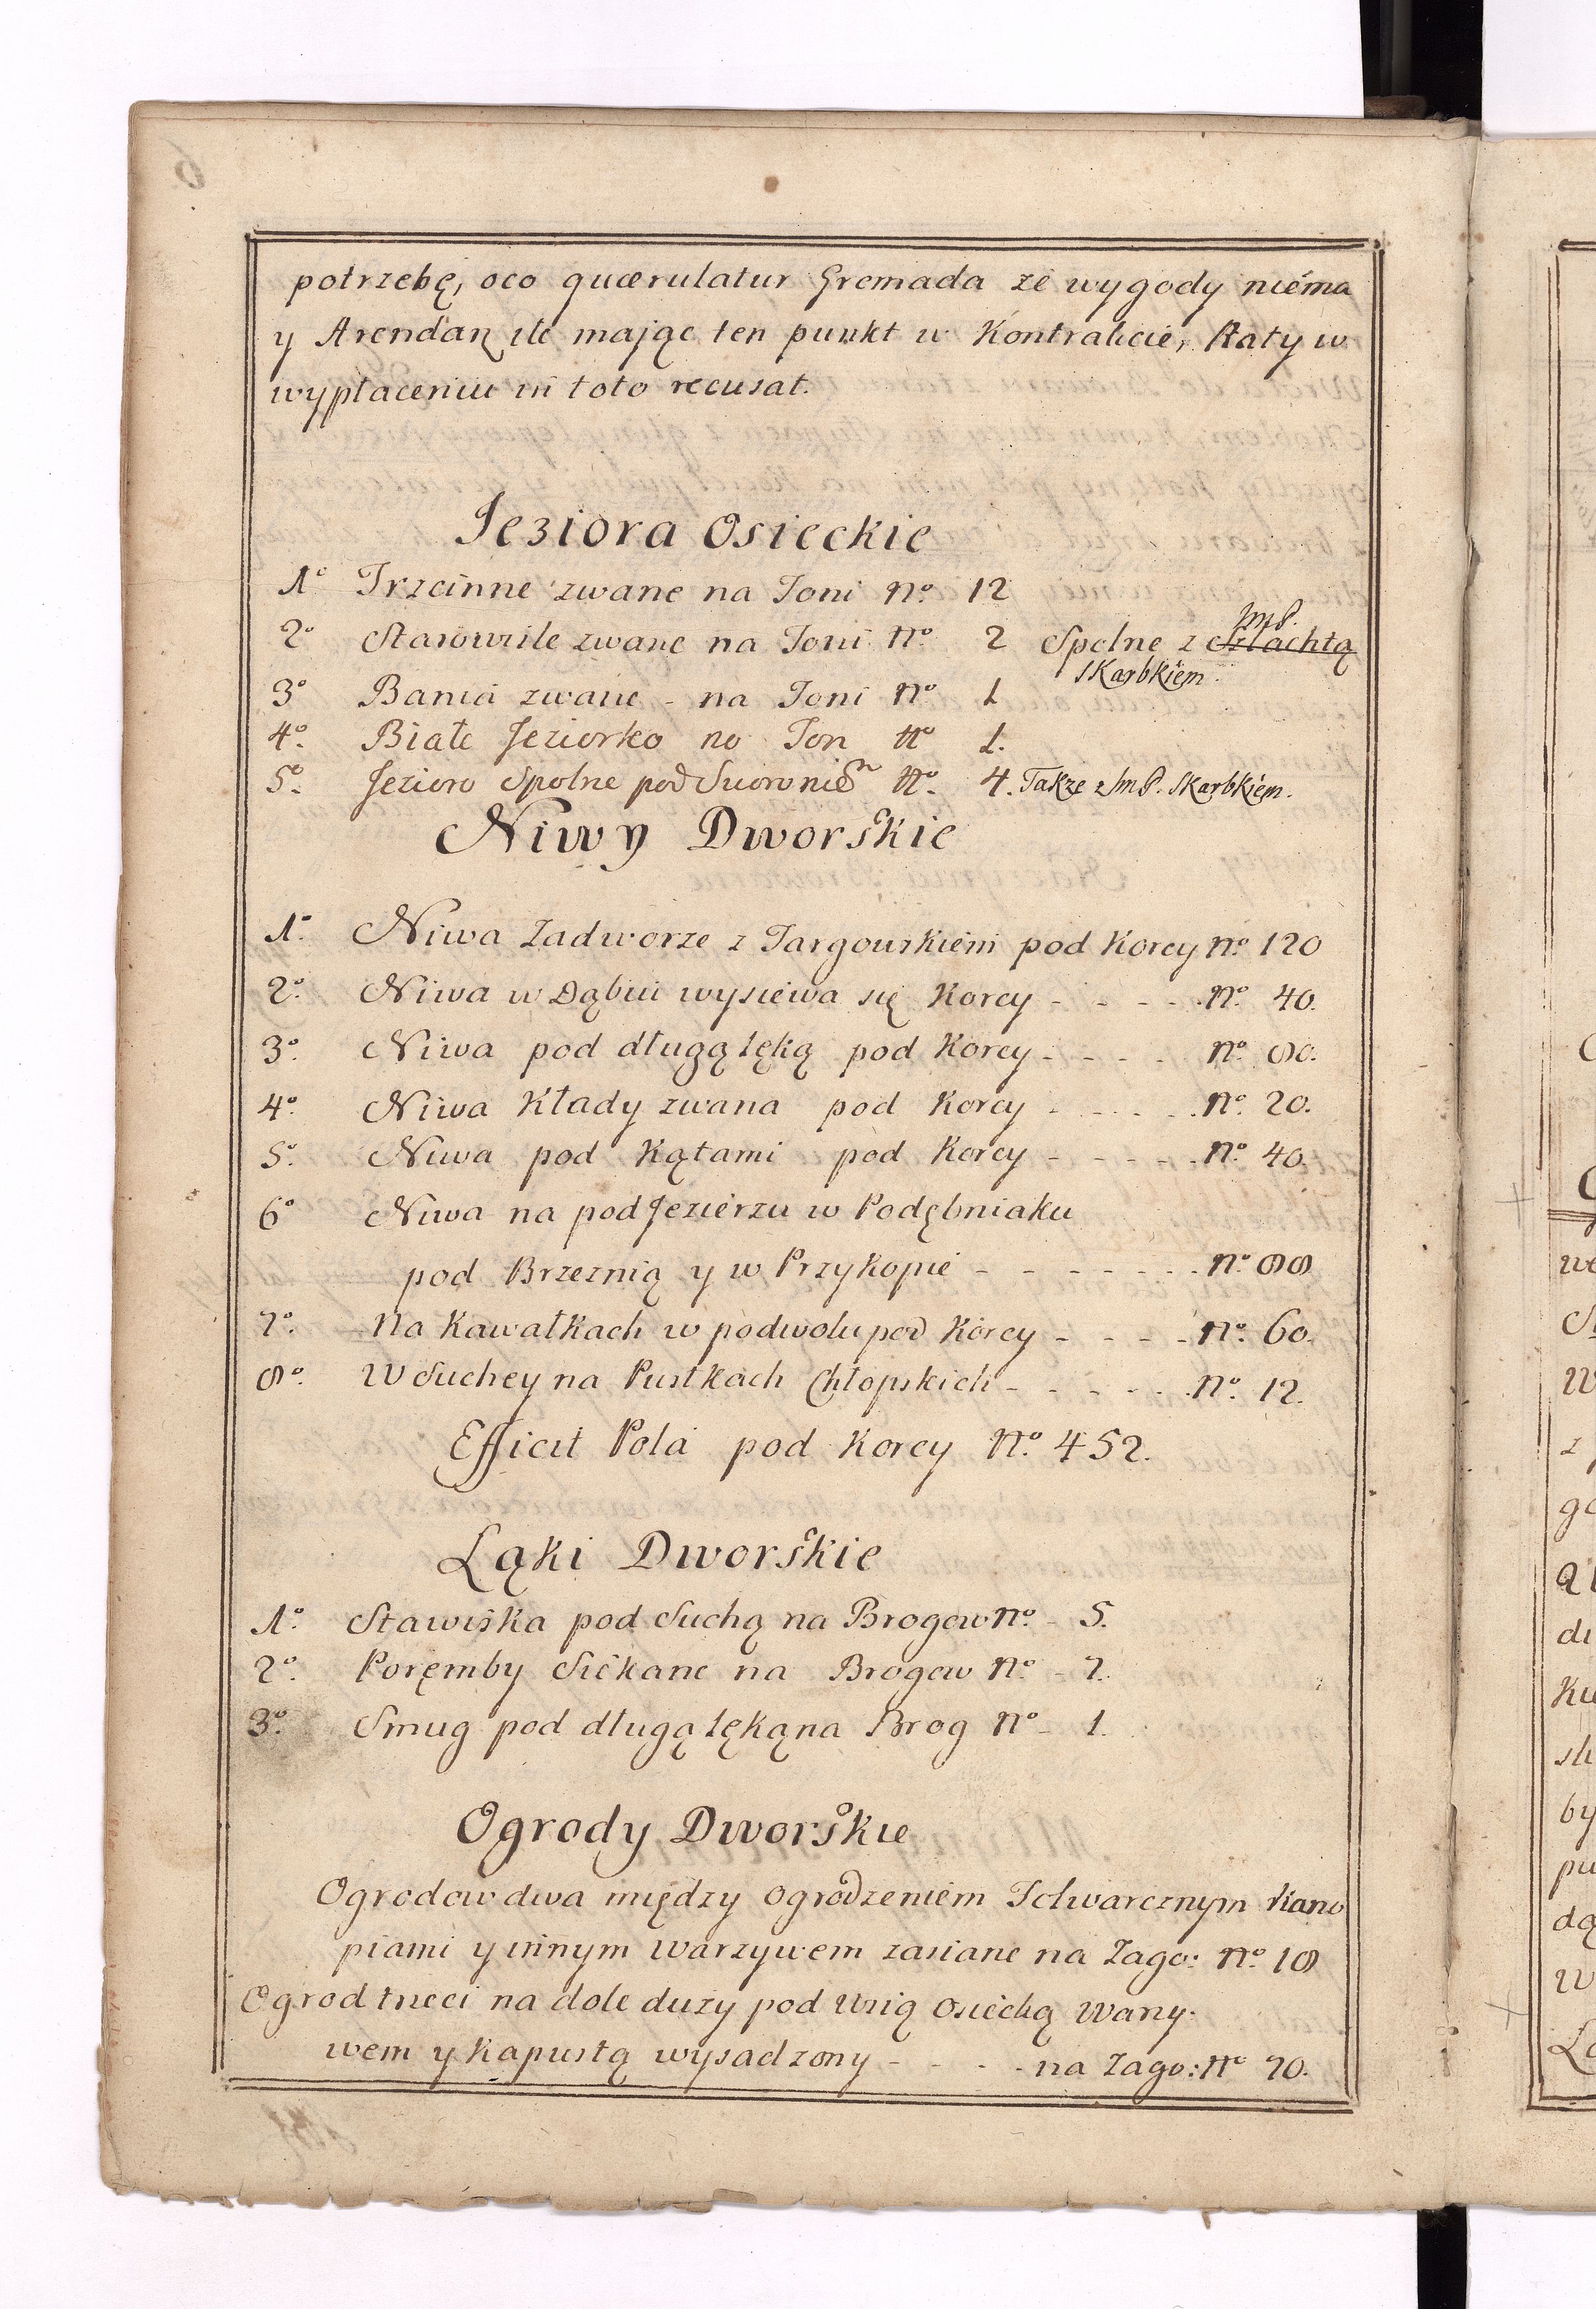 potrzebę, oco quærulatur Gromada ze wygody niéma
y Arendarz ile mając ten punkt w Kontrakcie, Raty w
wypłaceniu in toto recusat.
Jeziora Osieckie
1o Trzcinne zwane na Toni No. 12
2o Starowiile zwane na Toni No. 2 Spolne z Szlachtą JmP. Skarbkiem.
3o Bania zwane - na Toni No 1
4o. Białe Jeziorko na Ton No 1.
5o. Jezioro Spolne pod No. 4. Takze z JmP. Skarbkiem.
Niwy Dworskie
1o. Niwa Zadworze z Targowskiem pod Korcy No. 120
2o. Niwa w Dąbiu wysiewa się Korcy - - - - No. 40.
3o. Niwa pod długą łęką pod Korcy - - - - No. 80.
4o. Niwa Kłady zwana pod Korcy - - - - No. 20.
5o. Niwa pod Kątami pod Korcy - - - - - No. 40.
6o Niwa na podJezierzu w Podębniaku
pod Brzeznią y w Przykopie - - - - - - - No. 80
7o. Na Kawałkach w podwolu pod Korcy - - - - No. 60.
8o. W Suchey na Pustkach Chłopskich - - - - - No. 12.
Efficit Pola pod Korcy No. 452.
Łąki Dworskie
1o. Stawiska pod Suchą na Brogow No. - 5.
2o. Poręmby Siekane na Brogow No. - 7.
3o. Smug pod długą łęką na Brog No - 1.
Ogrody Dworskie
Ogrodow dwa między ogrodzeniem Folwarcznym Kano
piami y innym warzywem zasiane na Zago: No. 18
Ogrod trzeci na dole duzy pod Wsią Osiecką Warzy.
wem y kapustą wysadzony - - - - na Zago: No 70.